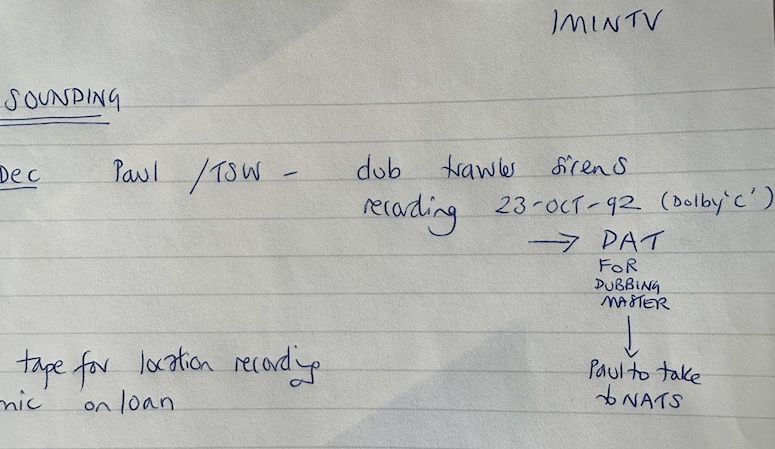 1MINTV
SOUNDING
Dec Paul /TSW - dub trawler sirens
recording 23-OCT-92 (Dolby 'C')
→ DAT
FOR
DUBBING
MASTER
↓
Paul to take
to NATS
tape for location recording
mic on loan